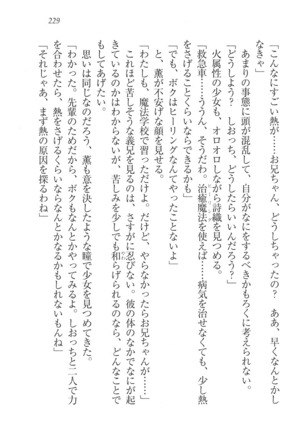 229
「こんなにすごい熱が……お兄ちゃん、どうしちゃったの? ああ、早くなんとかし
なきゃ」
あまりの事態に頭が混乱して、自分がなにをするべきかもろくに考えられない。
「どうしよう? しおっち、どうしたらいいんだろう?」
火属性の少女も、オロオロしながら詩織を見つめる。
「救急車……ううん、そうだわ。治癒魔法を使えば……病気を治せなくても、少し熱
をさげることくらいならできるかも」
「で、でも、ボクはヒーリングなんてやったことないよ」
と、薫が不安げな顔を見せる。
「わたしも、魔法学校で習っただけよ。だけど、やらなかったらお兄ちゃんが……」
これほど苦しそうな義兄を見るのは、さすがに忍びない。彼の体のなかでなにが起
きているのかはわからないが、苦しみを少しでも和らげられるのなら、どんなことで
もしてあげたい。
思いは同じなのだろう、薫も意を決したような瞳で少女を見つめてきた。
「わかった。先輩のためだから、ボクもなんとかやってみるよ。しおっちと二人で力
を合わせたら、熱をさげるくらいならなんとかなるかもしれないもんね」
「それじゃあ、まず熱の原因を探るわね」